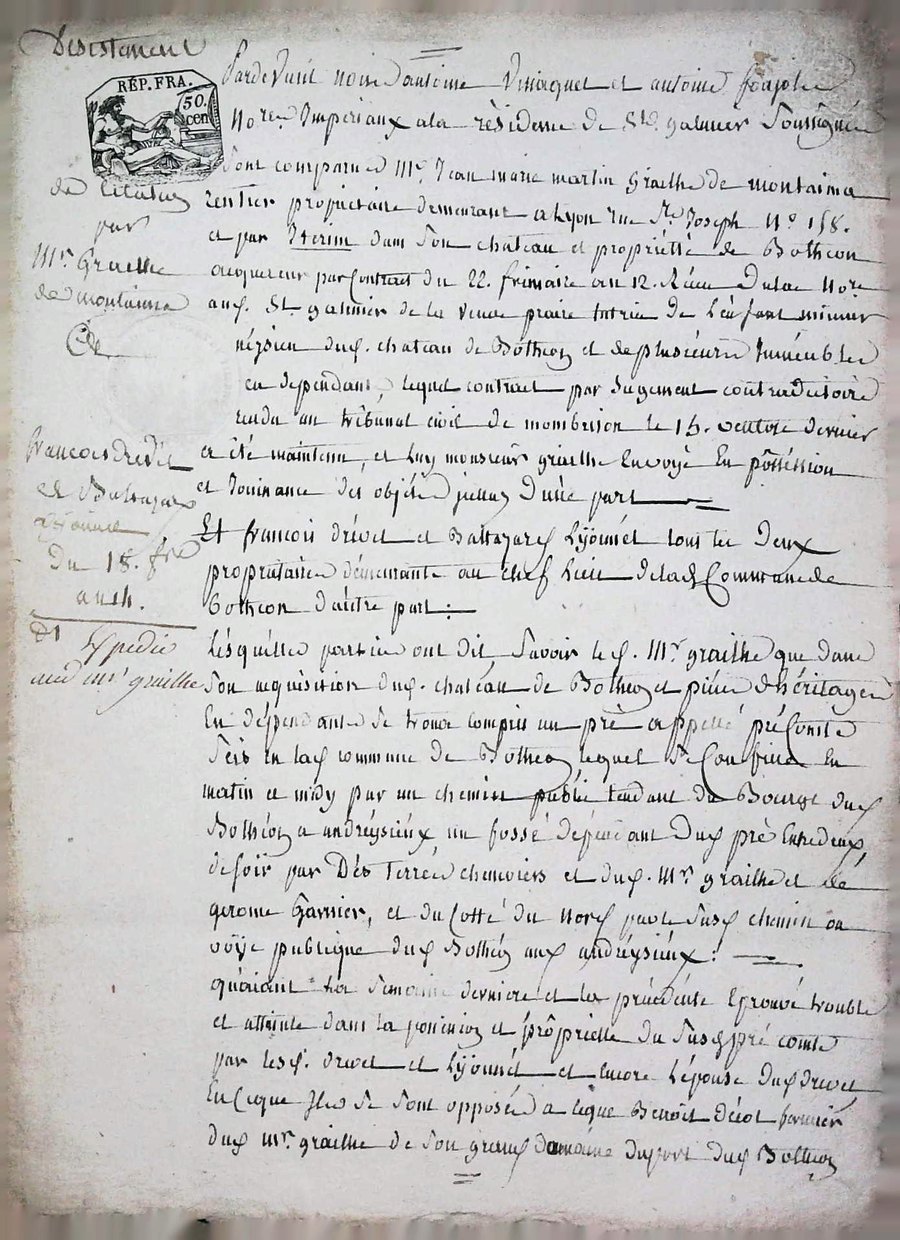 Desistement
RÉP. FRA.
50.
cen
de
par
Mr Grailhe
de montaima
françois drevet
et Baltazar
Lyonnet
Du 18. fre
an 14.
Expedié
aud mr grailhe
Pardevant nous antoine et antoine
Nores Impériaux a la résidence de St. galmier soussignés
Sont comparus Mr. Jean marie martin Grailhe de montaima
rentier propriétaire demeurant a Lyon rue St. Joseph No. 158.
et par Interim dans son chateau et propriété de Bothéon
acquereur par contract du 22. frimaire an 12. Reçu Nore
aud. St. galmier de la veuve praire tutrice de L'enfant mineur
négsien dud. chateau de Bothéon et de plusieurs Immeubles
en dependant, lequel contract par Jugement contradictoire
rendu au tribunal civil de monbrison le 15. dernier
a été maintenu, et luy monsieur grailhe Envoyé En possession
et Jouissance des objets d'une part
Et françois drevet et Baltazard Lyonnet tous les deux
propriétaires démeurants au chef Lieu de lad Commune de
Bothéon d'autre part :
Lésquelles parties ont dit savoir led. Mr. grailhe que dans
son acquisition dud. chatéau de Bothéon et piéces d'héritages
En dépendants se trouve compris un pré appellé pré Comte
Seis en lad commune de Bothéon lequel se Confine En
matin et midy par un chemin publié tendant du Bourg dud
Bothéon a andréysieux, un fossé dépendant dud pré Entredeux,
de soir par Dés Terres chenviers et dud. Mr. grailhe et de
gerome Garnier, et du Cotté du Nord par le susd chemin ou
voÿe publique dud Bothéon aux andréysieux :
qu'aiant La Semaine derniere et la précédente Eprouvé trouble
et atteinte dans la possession et propriette du susd pré comte
par lesd. drevet et Lyonnét et encore L'épouse dud drevet
En ce que Ils se sont opposés a ce que Benoit fermier
dud mr. grailhe de son grand domaine du port dud Bothéon